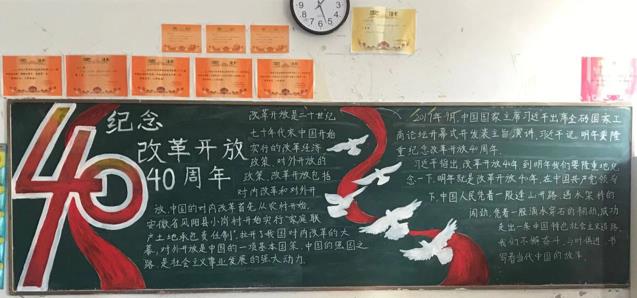 40
纪念
改革开放
40周年
改革开放是二十世纪
七十年代末中国开始
实行的改革经济
政策、对外开放的
政策,改革开放包括
对内改革和对外开
放,中国的对内改革首先从农村开始,
安徽省凤阳县小岗村开始实行"家庭联
产土地承包责任制",拉开了我国对内改革的大
幕,对外开放是中国的一项基本国策,中国的强国之
路,是社会主义事业发展的强大动力.
2017年9月,中国国家主席习近平出席金砖国家工
商论坛开幕式并发表主旨演讲,习近平说,明年要隆
重纪念改革开放40周年.
习近平指出,改革开放40年,到明年我们要隆重地纪
念一下,明年就是改革开放40年,在中国共产党领导
下,中国人民凭着一股逢山开路、遇水架桥的
闯劲,凭着一股滴水穿石的韧劲,成功
走出一条中国特色社会主义道路.
我们不懈奋斗、与时俱进,书
写着当代中国的故事.